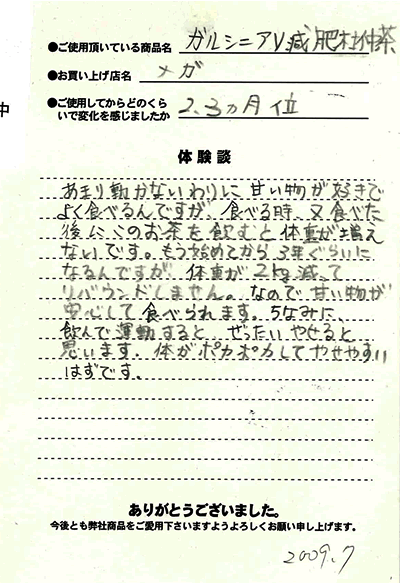 ●ご使用頂いている商品名 ガルシニアV減肥杜仲茶
●お買い上げ店名 メガ
●ご使用してからどのくら
いで変化を感じましたか 2、3ヵ月位
中
体験談
あまり動かないわりに甘い物が好きで
よく食べるんですが、食べる時、又食べた
後にこのお茶を飲むと体重が増え
ないです。もう始めてから3年ぐらいに
なるんですが、体重が2kg減って
リバウンドしません。なので甘い物が
安心して食べられます。ちなみに、
飲んで運動すると、ぜったいやせると
思います。体がポカポカしてやせやすい
はずです。
ありがとうございました。
今後とも弊社商品をご愛用下さいますようよろしくお願い申し上げます。
2009.7